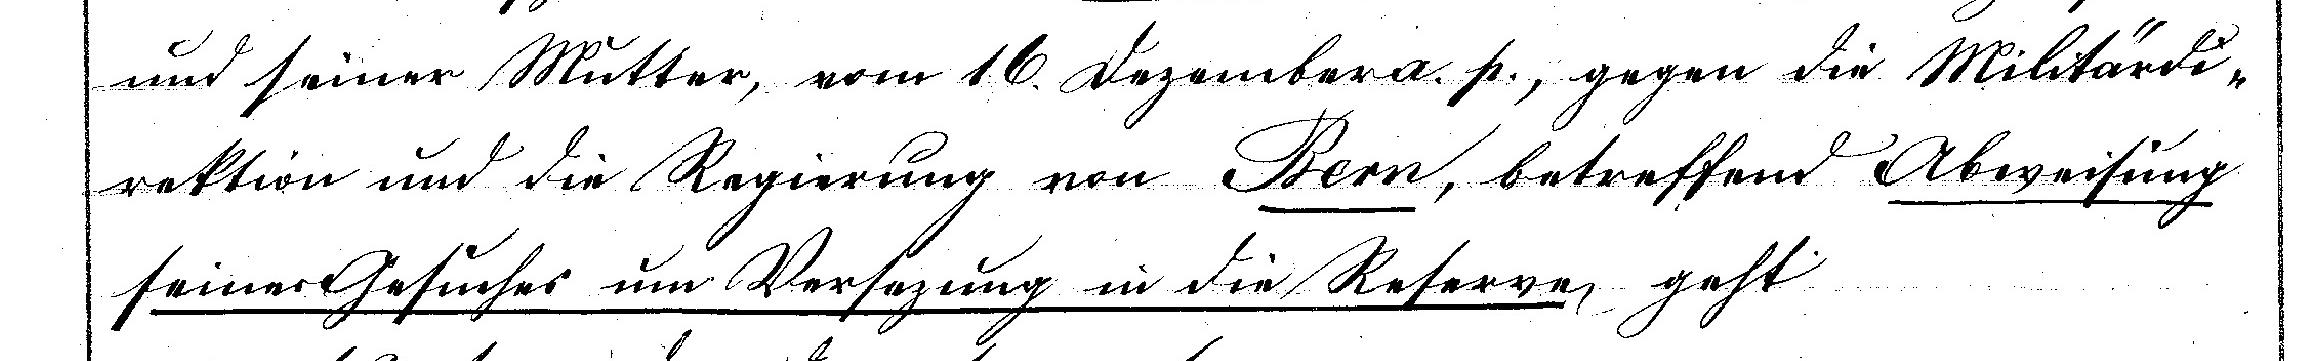 und seiner Mutter, vom 16. Dezember a. p., gegen die Militärdi-
rektion und die Regierung von Bern, betreffend Abweisung
seines Gesuches um Versezung in die Reserve, geht